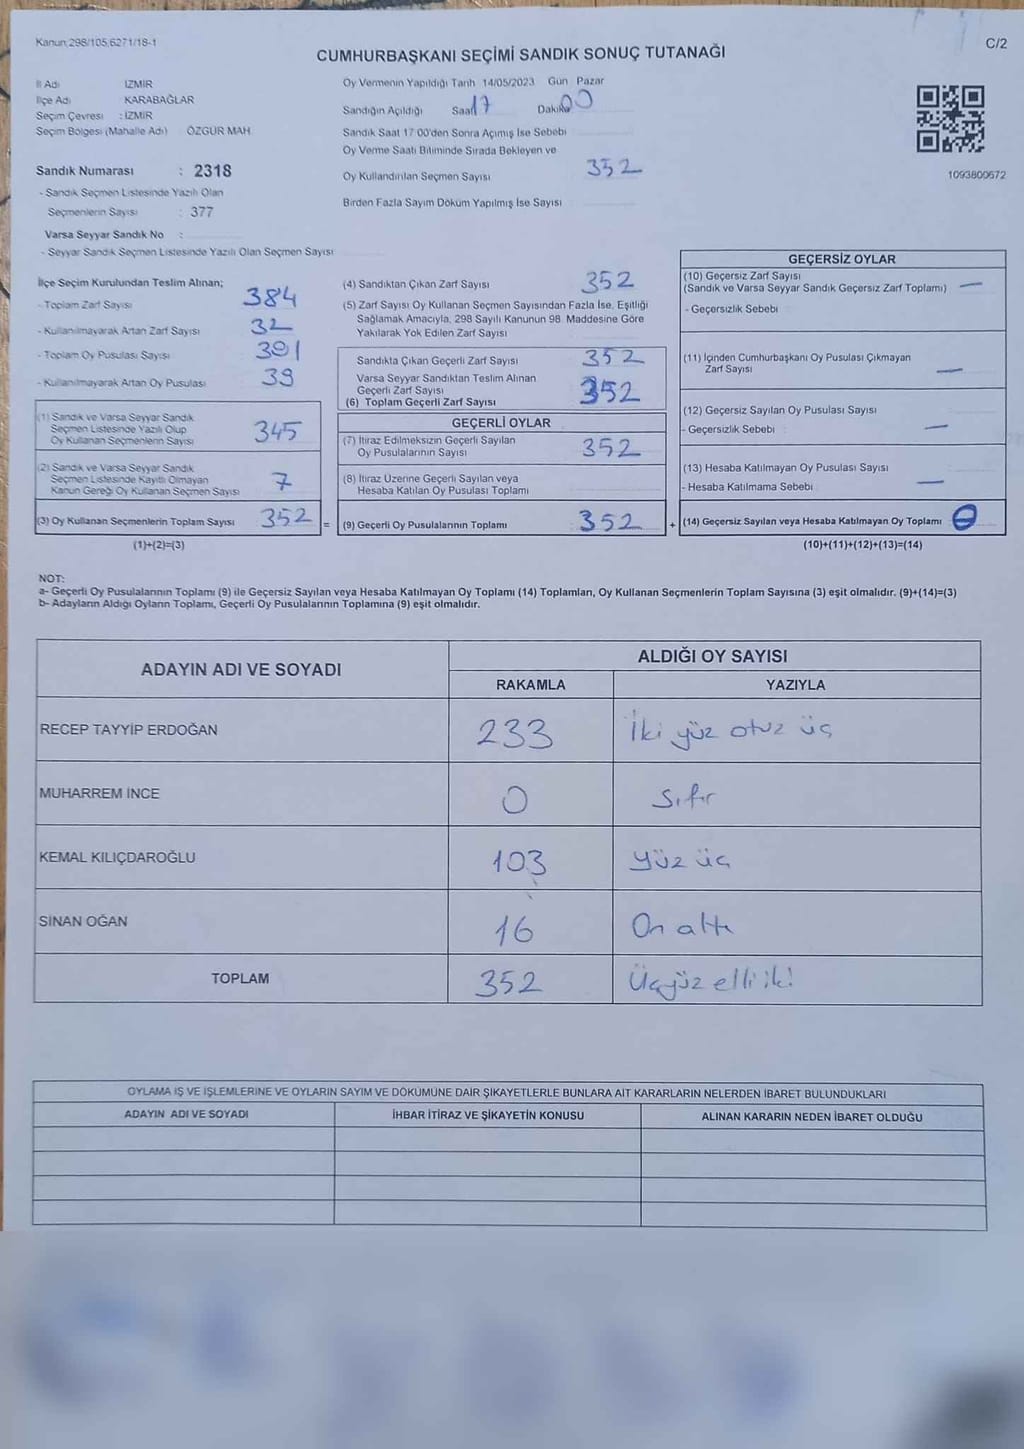 Kanun:298/105,6271/18-1
C/2
CUMHURBAŞKANI SEÇİMİ SANDIK SONUÇ TUTANAĞI
İl Adı İZMİR
İlçe Adı KARABAĞLAR
Seçim Çevresi : İZMİR
Seçim Bölgesi (Mahalle Adı) ÖZGÜR MAH.
Sandık Numarası : 2318
- Sandık Seçmen Listesinde Yazılı Olan
Seçmenlerin Sayısı : 377
Varsa Seyyar Sandık No :
- Seyyar Sandık Seçmen Listesinde Yazılı Olan Seçmen Sayısı
Oy Vermenin Yapıldığı Tarih 14/05/2023 Gün Pazar
Sandığın Açıldığı Saat 17 Dakika 00
Sandık Saat 17:00'den Sonra Açılmış İse Sebebi
Oy Verme Saati Bitiminde Sırada Bekleyen ve
Oy Kullandırılan Seçmen Sayısı 352
Birden Fazla Sayım Döküm Yapılmış İse Sayısı
1093800672
İlçe Seçim Kurulundan Teslim Alınan;
- Toplam Zarf Sayısı 384
- Kullanılmayarak Artan Zarf Sayısı 32
- Toplam Oy Pusulası Sayısı 391
- Kullanılmayarak Artan Oy Pusulası 39
(1) Sandık ve Varsa Seyyar Sandık
Seçmen Listesinde Yazılı Olup
Oy Kullanan Seçmenlerin Sayısı 345
(2) Sandık ve Varsa Seyyar Sandık
Seçmen Listesinde Kayıtlı Olmayan
Kanun Gereği Oy Kullanan Seçmen Sayısı 7
(3) Oy Kullanan Seçmenlerin Toplam Sayısı 352 =
(1)+(2)=(3)
(4) Sandıktan Çıkan Zarf Sayısı 352
(5) Zarf Sayısı Oy Kullanan Seçmen Sayısından Fazla İse, Eşitliği
Sağlamak Amacıyla, 298 Sayılı Kanunun 98. Maddesine Göre
Yakılarak Yok Edilen Zarf Sayısı
Sandıkta Çıkan Geçerli Zarf Sayısı 352
Varsa Seyyar Sandıktan Teslim Alınan
Geçerli Zarf Sayısı
(6) Toplam Geçerli Zarf Sayısı 352
GEÇERLİ OYLAR
(7) İtiraz Edilmeksizin Geçerli Sayılan
Oy Pusulalarının Sayısı 352
(8) İtiraz Üzerine Geçerli Sayılan veya
Hesaba Katılan Oy Pusulası Toplamı
(9) Geçerli Oy Pusulalarının Toplamı 352 +
GEÇERSİZ OYLAR
(10) Geçersiz Zarf Sayısı
(Sandık ve Varsa Seyyar Sandık Geçersiz Zarf Toplamı) —
- Geçersizlik Sebebi
(11) İçinden Cumhurbaşkanı Oy Pusulası Çıkmayan
Zarf Sayısı —
(12) Geçersiz Sayılan Oy Pusulası Sayısı
- Geçersizlik Sebebi —
(13) Hesaba Katılmayan Oy Pusulası Sayısı
- Hesaba Katılmama Sebebi —
(14) Geçersiz Sayılan veya Hesaba Katılmayan Oy Toplamı 0
(10)+(11)+(12)+(13)=(14)
NOT:
a- Geçerli Oy Pusulalarının Toplamı (9) ile Geçersiz Sayılan veya Hesaba Katılmayan Oy Toplamı (14) Toplamları, Oy Kullanan Seçmenlerin Toplam Sayısına (3) eşit olmalıdır. (9)+(14)=(3)
b- Adayların Aldığı Oyların Toplamı, Geçerli Oy Pusulalarının Toplamına (9) eşit olmalıdır.
ADAYIN ADI VE SOYADI ALDIĞI OY SAYISI
RAKAMLA YAZIYLA
RECEP TAYYİP ERDOĞAN 233 İki yüz otuz üç
MUHARREM İNCE 0 Sıfır
KEMAL KILIÇDAROĞLU 103 Yüz üç
SİNAN OĞAN 16 On altı
TOPLAM 352 Üçyüz elli iki
OYLAMA İŞ VE İŞLEMLERİNE VE OYLARIN SAYIM VE DÖKÜMÜNE DAİR ŞİKAYETLERLE BUNLARA AİT KARARLARIN NELERDEN İBARET BULUNDUKLARI
ADAYIN ADI VE SOYADI İHBAR İTİRAZ VE ŞİKAYETİN KONUSU ALINAN KARARIN NEDEN İBARET OLDUĞU